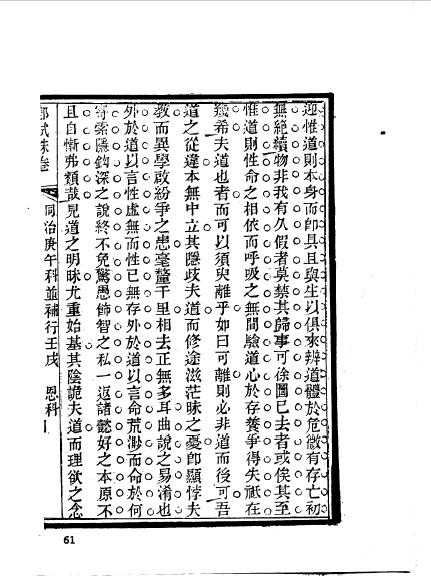 迎惟道則本身而卽具且與生以俱來辨道體於危微有存亡初
無絶續物非我有久假者莫禁其歸事可徐圖已去者或俟其至
惟道則性命之相依而呼吸之無間驗道心於存養爭得失祗在
幾希夫道也者而可以須臾離乎如曰可離則必非道而後可吾
道之從違本無中立其隱歧夫道而修途滋茫昧之憂卽顯悖夫
敎而異學啟紛爭之患毫釐千里相去正無多耳曲說之易淆也
外於道以言性虛無而性已無存外於道以言命荒渺而命於何
寄索隱鉤深之說終不免驚愚飾智之私一返諸懿好之本原不
且自慚弗類哉見道之明昧尤重始基其陰詭夫道而理欲之念
試硃卷 同治庚午科並補行壬戌 恩科
61